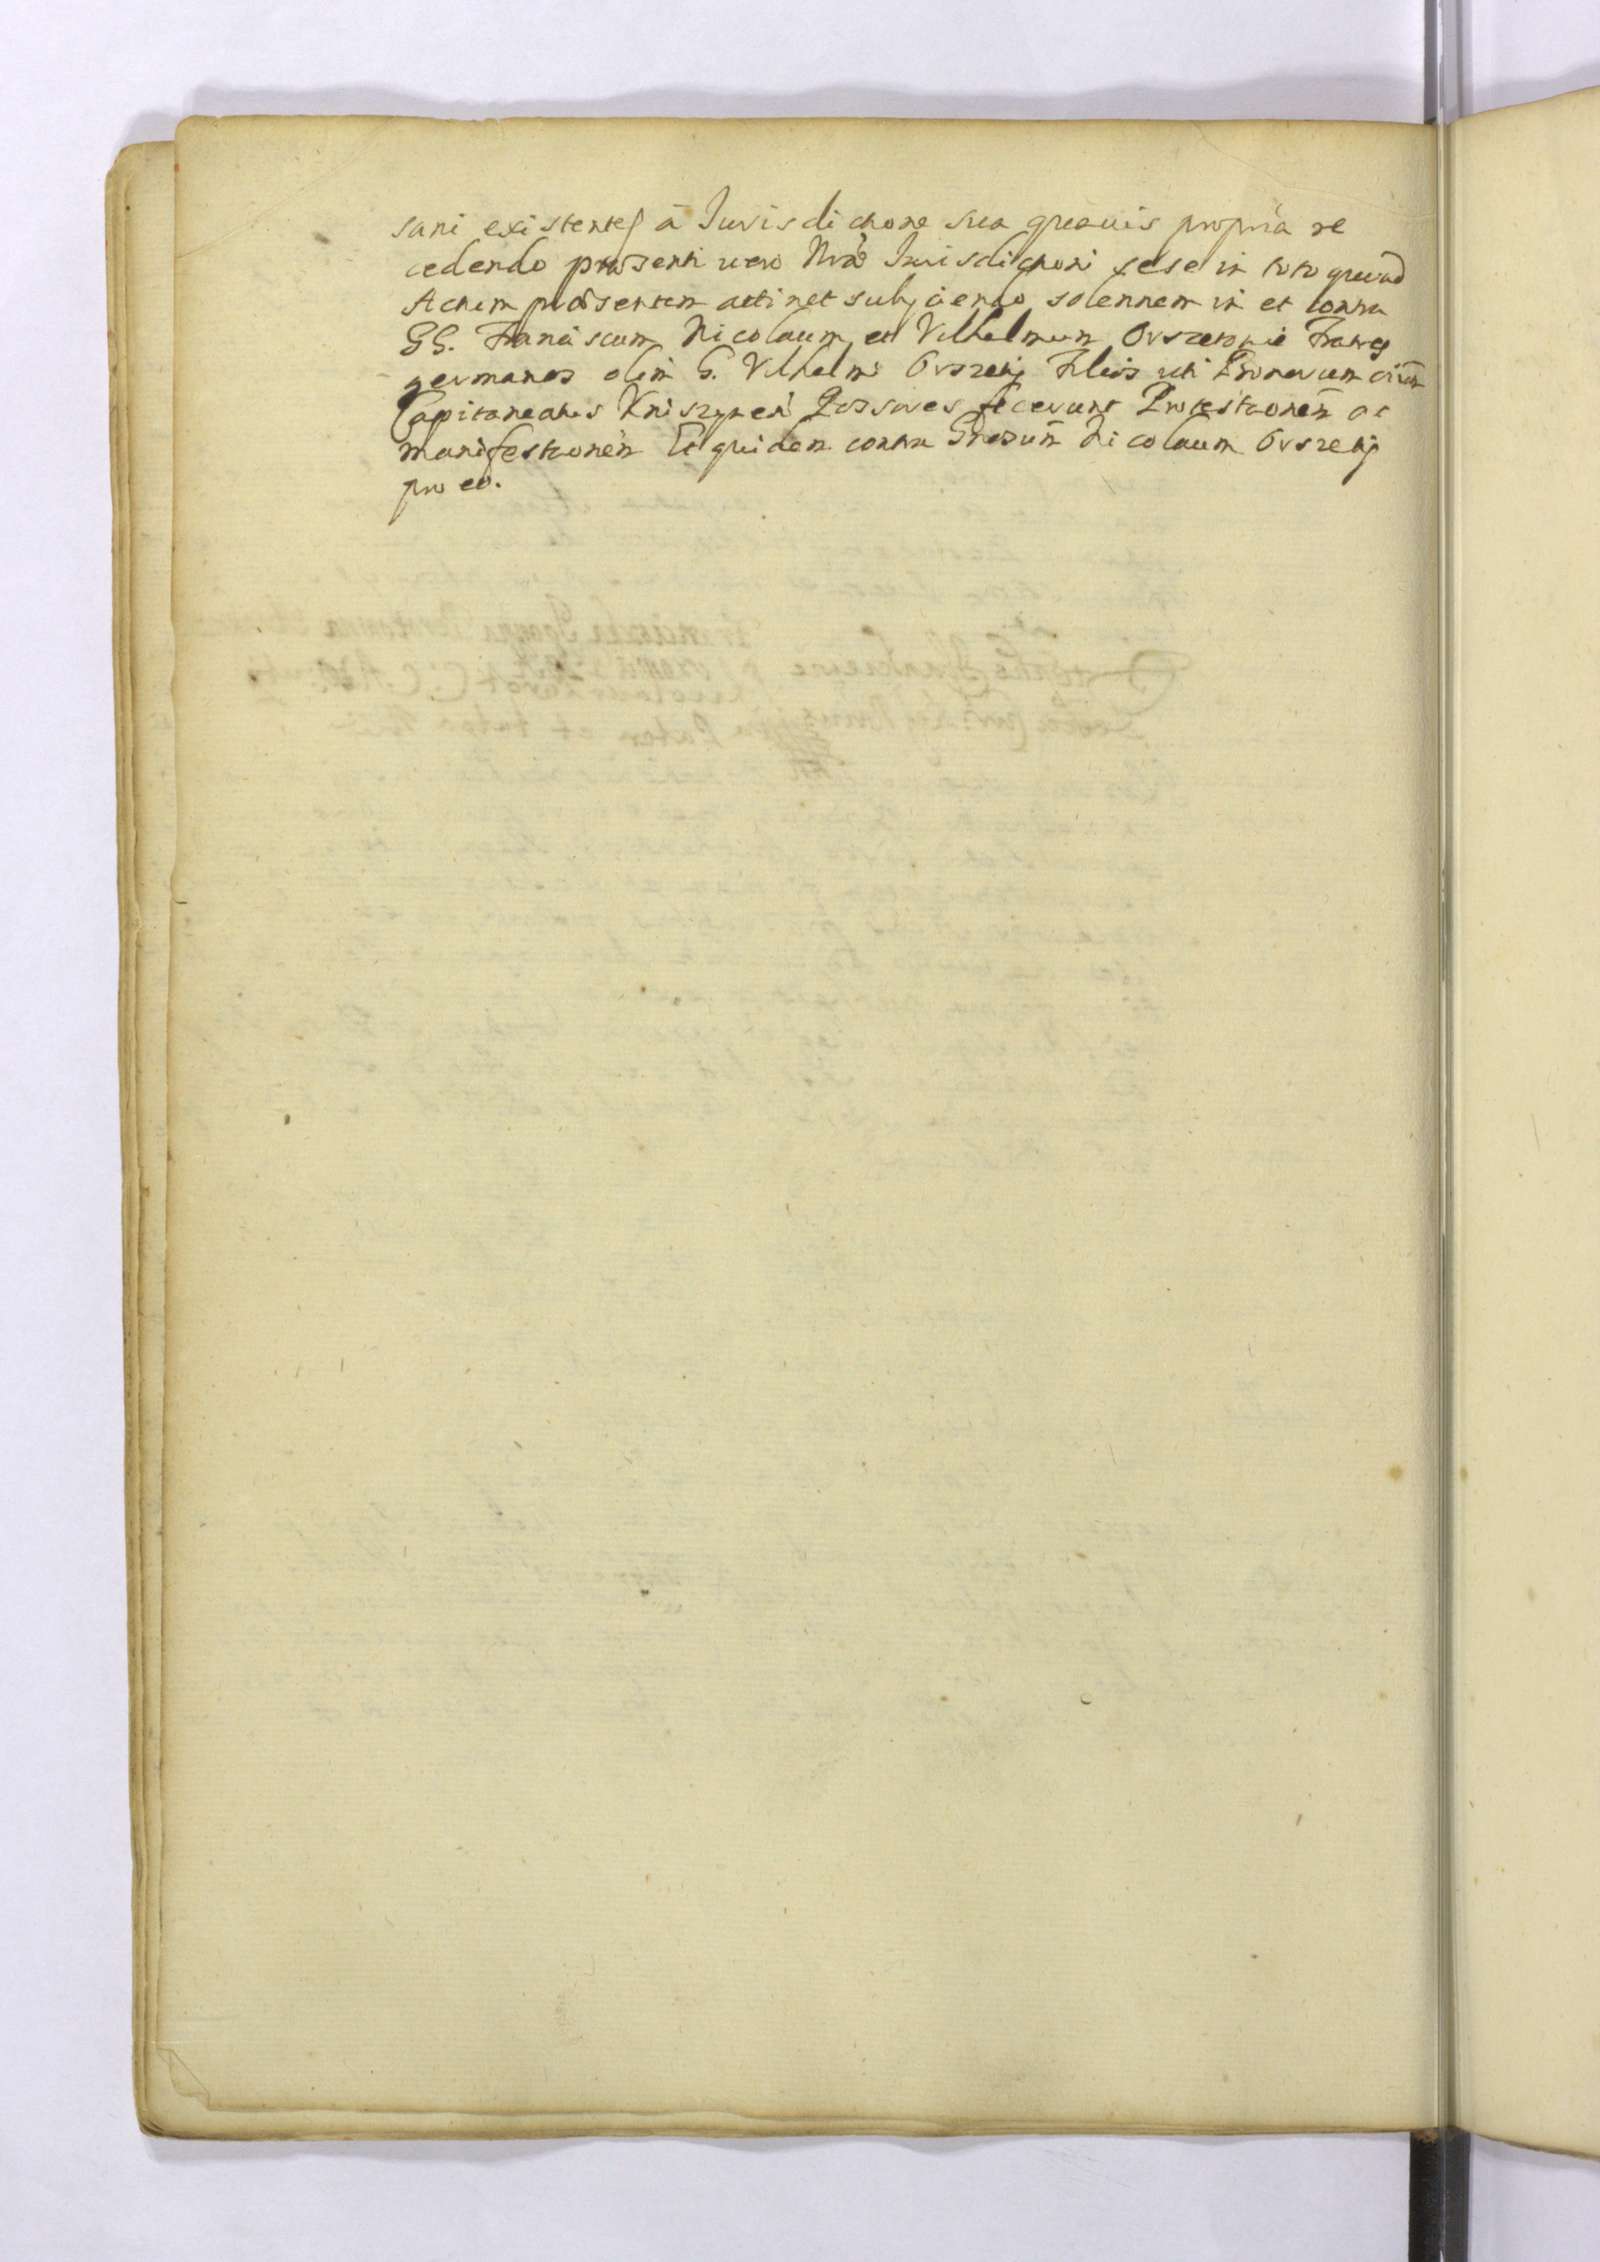 sani existentes à Jurisdictione sua quavis propria re
cedendo præsenti vero Nræ Jurisdictioni sese in toto quoad
Actum præsentem attinet subjiciendo, solennem in et contra
GG. Franciscum Nicolaum et Vilhelmum Orszetowie Fratres
germanos olim G. Vilhelmi Orszetty Filios uti Bonorum
Capitaneatus Kniszynen Possores fecerunt Protestaonem ac
manifestaonem Et quidem contra Gnosum Nicolaum Orszetty
pro eo.